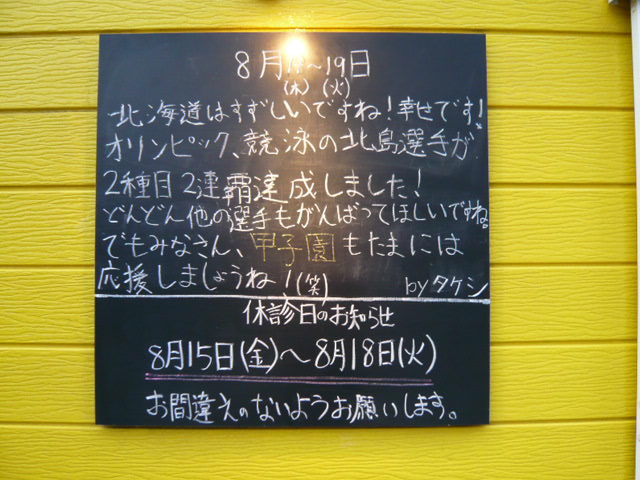 8月14~19日
(木) (火)
北海道はすずしいですね!幸せです!
オリンピック、競泳の北島選手が
2種目2連覇達成しました!
どんどん他の選手もがんばってほしいですね。
でもみなさん、甲子園もたまには
応援しましょうね!(笑) byタケシ
休診日のお知らせ
8月15日(金)~8月18日(火)
お間違えのないようお願いします。